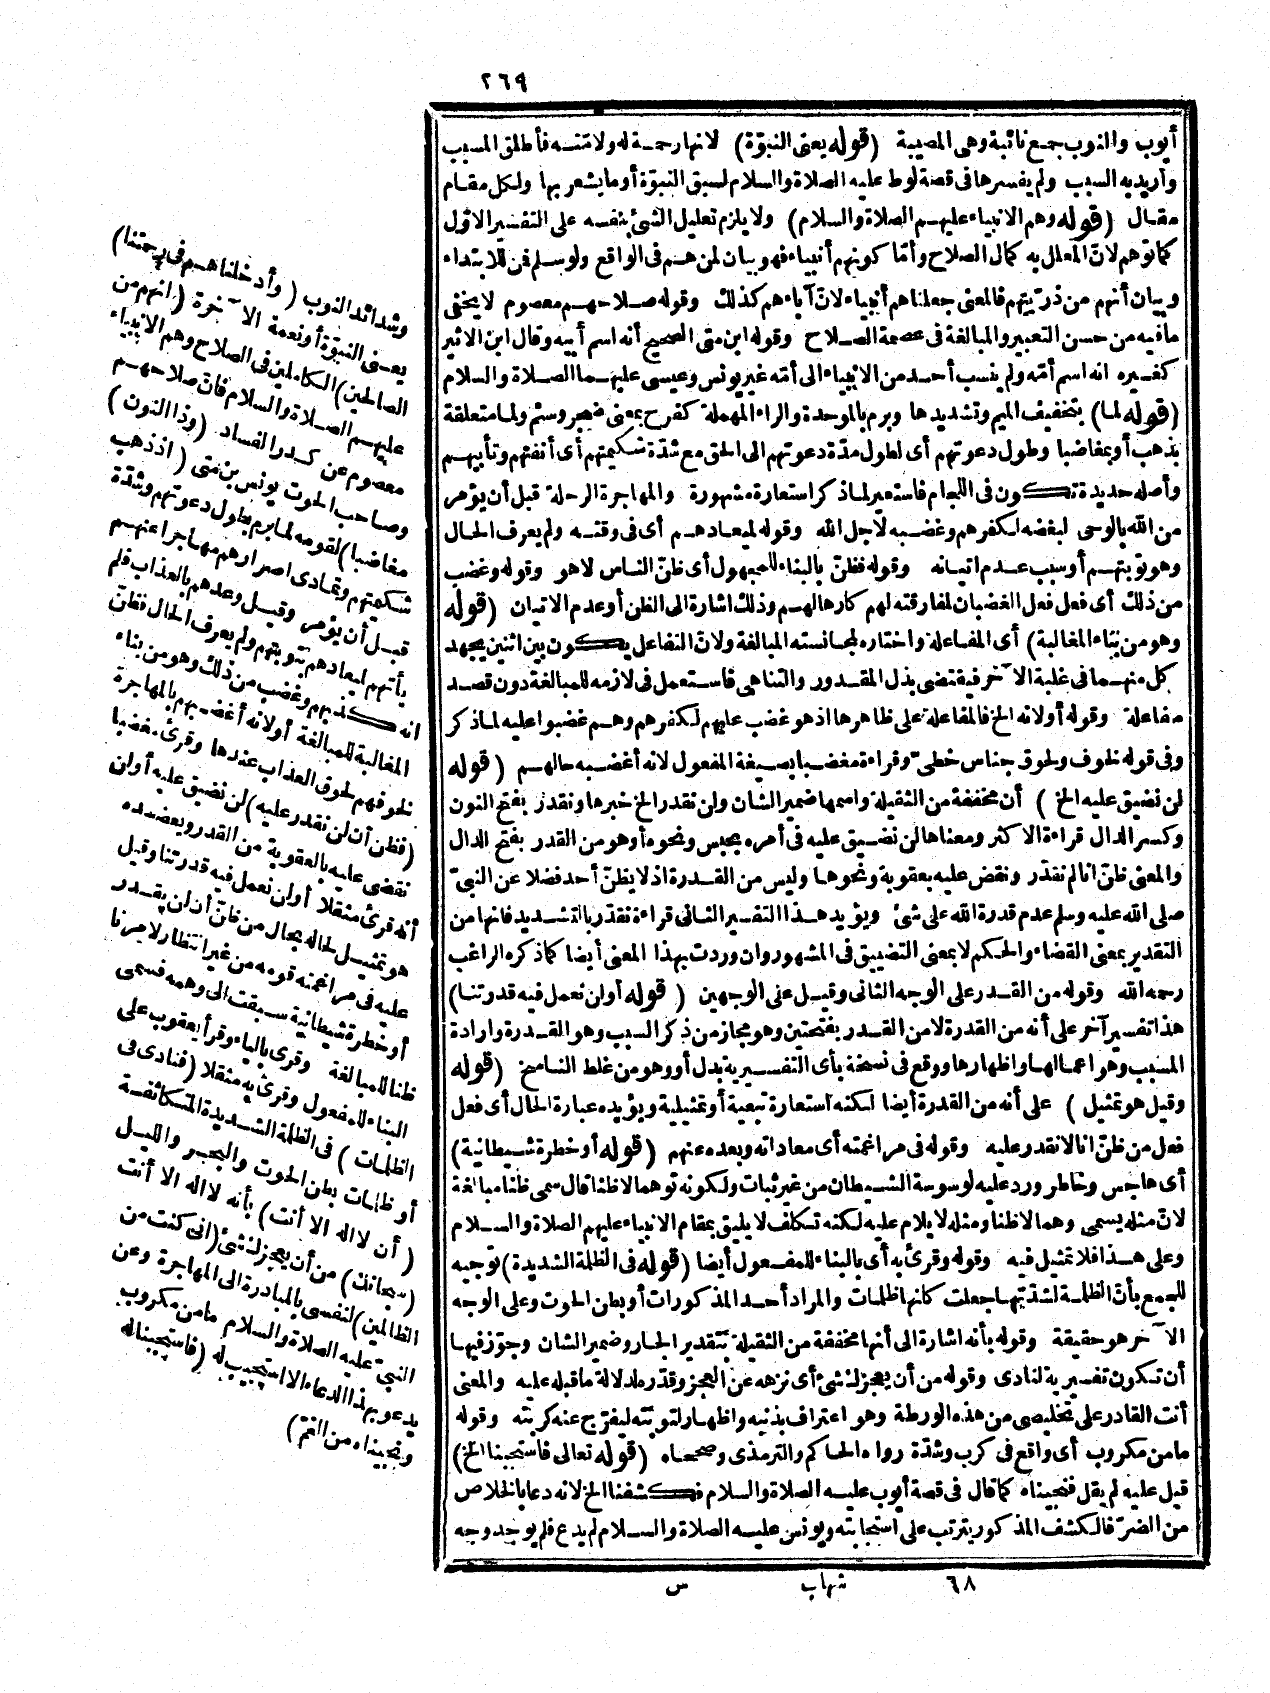 ٢٦٩
أيوب والنوب جمع نائبة وهى المصيبة (قوله يعنى النبوّة) لانها رحمة له ولامّته فأطلق المسبب
وأريد به السبب ولم يفسرها فى قصة لوط عليه الصلاة والسلام لسبق النبوّة أو ما يشعر بها ولكل مقام
مقال (قوله وهم الانبياء عليهم الصلاة والسلام) ولا يلزم تعليل الشئ بنفسه على التفسير الاوّل
كما توّهم لانّ المعلل به كمال الصلاح وأمّا كونهم أنبياء فهو بيان لمن هم فى الواقع ولو سلم فمن للابتداء
وبيان أنهم من ذرّيتهم فالمعنى جعلناهم أنبياء لانّ آباءهم كذلك وقوله صلاحهم معصوم لا يخفى
ما فيه من حسن التعبير والمبالغة فى عصمة الصلاح وقوله ابن متى الصحيح أنه اسم أبيه وقال ابن الاثير
كغيره انه اسم أمّه ولم ينسب أحد من الانبياء الى أمّه غير يونس وعيسى عليهما الصلاة والسلام
(قوله لما) بتخفيف الميم وتشديدها وبرم بالموحدة والراء المهملة كفرح بمعنى ضجر وسئم ولما متعلقة
بذهب أو بمغاضبا وطول دعوتهم أى لطول مدّة دعوتهم الى الحق مع شدّة شكيمتهم أى أنفتهم وتأبيهم
وأصله حديدة تكون فى اللجام فاستعير لما ذكر استعارة مشهورة والمهاجرة الرحلة قبل أن يؤمر
من الله بالوحى لبغضه لكفرهم وغضبه لاجل الله وقوله لميعادهم أى فى وقته ولم يعرف الحال
وهو توبتهم أو سبب عدم اتيانه وقوله فظنّ بالبناء للمجهول أى ظنّ الناس لا هو وقوله وغضب
من ذلك أى فعل فعل الغضبان لمفارقته لهم كارها لهم وذلك اشارة الى الظن أو عدم الاتيان (قوله
وهو من بناء المغالبة) أى المفاعلة واختاره لمجانسته المبالغة ولانّ التفاعل يكون بين اثنين يجهد
كل منهما فى غلبة الا خر فيقتضى بذل المقدور والتناهى فاستعمل فى لازمه للمبالغة دون قصد
مفاعلة وقوله أو لانه الخ فالمفاعلة على ظاهرها اذ هو غضب عليهم لكفرهم وهم غضبوا عليه لما ذكر
وفى قوله لخوف ولحوق جناس خطىّ وقراءة مغضبا بصيغة المفعول لانه أغضبه حالهم (قوله
لن نضيق عليه الخ) أن مخففة من الثقيلة واسمها ضمير الشان ولن نقدر الخ خبرها ونقدر بفتح النون
وكسر الدال قراءة الاكثر ومعناها لن نضيق عليه فى أمره بحبس ونحوه أو هو من القدر بفتح الدال
والمعنى ظنّ انا لم نقدّر ونقض عليه بعقوبة ونحوها وليس من القدرة اذ لا يظنّ أحد فضلا عن النبىّ
صلى الله عليه وسلم عدم قدرة الله على شئ ويؤيد هذا التفسير الثانى قراءة نقدّر بالتشديد فانها من
التقدير بمعنى القضاء والحكم لا بمعنى التضييق فى المشهور وان وردت بهذا المعنى أيضا كما ذكره الراغب
رحمه الله وقوله من القدر على الوجه الثانى وقيل على الوجهين (قوله أو لن نعمل فيه قدرتنا)
هذا تفسير آخر على أنه من القدرة لا من القدر بفتحتين وهو مجاز من ذكر السبب وهو القدرة وارادة
المسبب وهو اعمالها واظهارها ووقع فى نسخة بأى التفسيرية بدل أو وهو من غلط الناسخ (قوله
وقيل هو تمثيل) على أنه من القدرة أيضا لكنه استعارة تبعية أو تمثيلية ويؤيده عبارة الحال أى فعل
فعل من ظنّ انا لا نقدر عليه وقوله فى مراغمته أى معاداته وبعده عنهم (قوله أو خطرة شيطانية)
أى هاجس وخاطر ورد عليه لوسوسة الشيطان من غير ثبات ولكونه توهما لا ظنا قال سمى ظنا مبالغة
لانّ مثله يسمى وهما لا ظنا ومثله لا يلام عليه لكنه تكلف لا يليق بمقام الانبياء عليهم الصلاة والسلام
وعلى هذا فلا تمثيل فيه وقوله وقرئ به أى بالبناء للمفعول أيضا (قوله فى الظلمة الشديدة) توجيه
للجمع بأنّ الظلمة لشدّتها جعلت كأنها ظلمات والمراد أحد المذكورات أو بطن الحوت وعلى الوجه
الا خر هو حقيقة وقوله بأنه اشارة الى أنها مخففة من الثقيلة بتقدير الجار وضمير الشان وجوّز فيها
أن تكون تفسيرية لنادى وقوله من أن يعجزك شئ أى نزهه عن العجز وقدّره لدلالة ما قبله عليه والمعنى
أنت القادر على تخليصى من هذه الورطة وهو اعتراف بذنبه واظهار لتوبته ليفرّج عنه كربته وقوله
ما من مكروب أى واقع فى كرب وشدّة رواه الحاكم والترمذى وصححاه (قوله تعالى فاستجبنا الخ)
قيل عليه لم يقل فنجيناه كما قال فى قصة أيوب عليه الصلاة والسلام فكشفنا الخ لانه دعا بالخلاص
من الضرّ فالكشف المذكور يترتب على استجابته ويونس عليه الصلاة والسلام لم يدع فلم يوجد وجه
وشدائد النوب (وأدخلناهم فى رحمتنا)
يعنى النبوّة أو نعمة الا خرة (انهم من
الصالحين) الكاملين فى الصلاح وهم الانبياء
عليهم الصلاة والسلام فانّ صلاحهم
معصوم عن كدر الفساد (وذا النون)
وصاحب الحوت يونس بن متى (اذ ذهب
مغاضبا) لقومه لما برم بطول دعوتهم وشدّة
شكيمتهم وتمادى اصرارهم مهاجرا عنهم
قبل أن يؤمر وقيل وعدهم بالعذاب فلم
يأتهم لميعادهم بتوبتهم ولم يعرف الحال فظنّ
انه كذبهم وغضب من ذلك وهو من بناء
المغالبة للمبالغة أو لانه أغضبهم بالمهاجرة
لخوفهم لحوق العذاب عندها وقرئ مغضبا
(فظن أن لن نقدر عليه) لن نضيق عليه أو لن
نقضى عليه بالعقوبة من القدر ويعضده
أنه قرئ مثقلا أو لن نعمل فيه قدرتنا وقيل
هو تمثيل لحاله بحال من ظنّ أن لن يقدر
عليه فى مراغمته قومه من غير انتظار لامرنا
أو خطرة شيطانية سبقت الى وهمه فسمى
ظنا للمبالغة وقرئ بالياء وقرأ يعقوب على
البناء للمفعول وقرئ به مثقلا (فنادى فى
الظلمات) فى الظلمة الشديدة المتكاثفة
أو ظلمات بطن الحوت والبحر والليل
(أن لا اله الا أنت) بأنه لا اله الا أنت
(سبحانك) من أن يعجزك شئ (انى كنت من
الظالمين) لنفسى بالمبادرة الى المهاجرة وعن
النبىّ عليه الصلاة والسلام ما من مكروب
يدعو بهذا الدعاء الا استجيب له (فاستجبنا له
ونجيناه من الغمّ)
٦٨ شهاب س